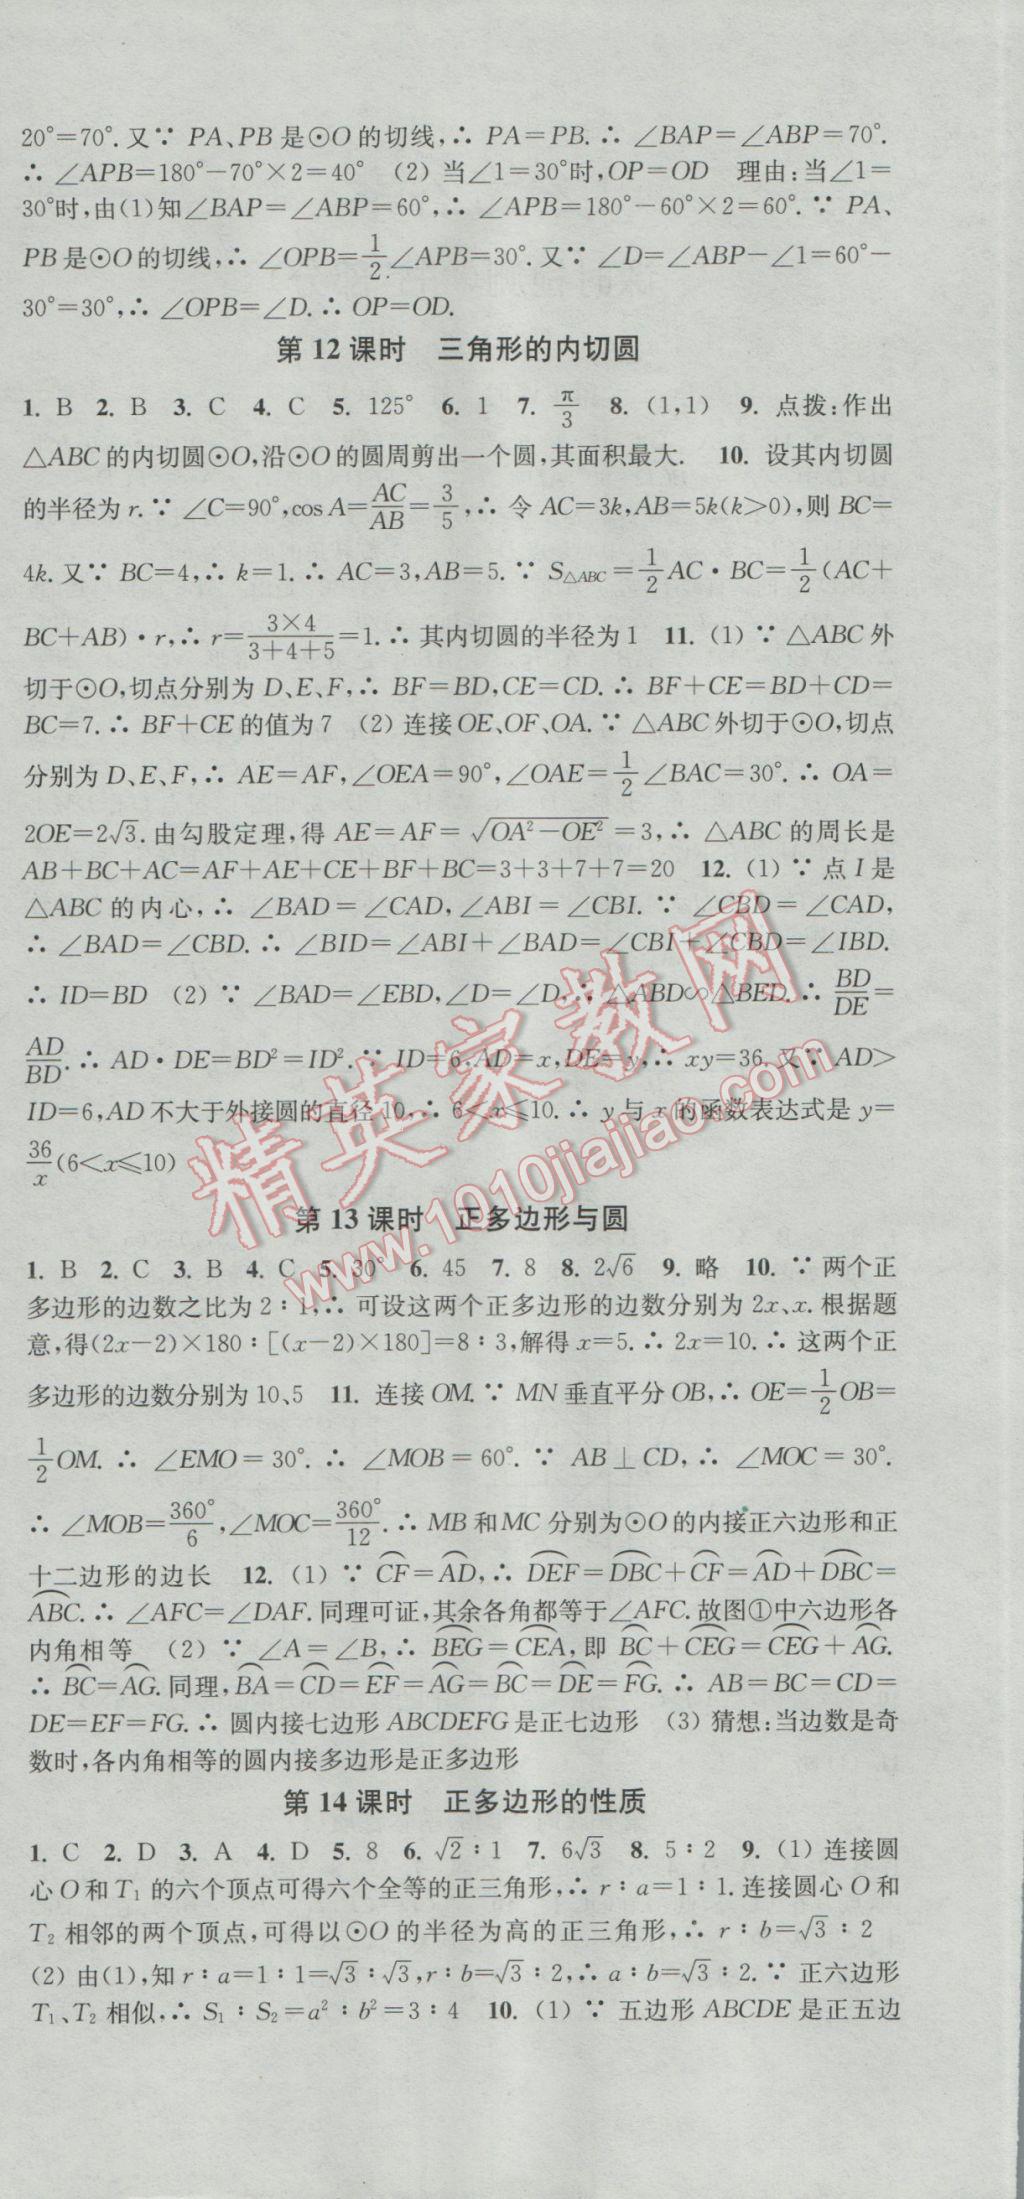 20°=70°.又∵ PA、PB是⊙O的切线,∴ PA=PB.∴ ∠BAP=∠ABP=70°.
∴ ∠APB=180°-70°×2=40° (2) 当∠1=30°时,OP=OD 理由:当∠1=
30°时,由(1)知∠BAP=∠ABP=60°,∴ ∠APB=180°-60°×2=60°.∵ PA、
PB是⊙O的切线,∴ ∠OPB=1/2∠APB=30°.又∵ ∠D=∠ABP-∠1=60°-
30°=30°,∴ ∠OPB=∠D.∴ OP=OD.
第12课时 三角形的内切圆
1. B 2. B 3. C 4. C 5. 125° 6. 1 7. π/3 8. (1,1) 9. 点拨:作出
△ABC的内切圆⊙O,沿⊙O的圆周剪出一个圆,其面积最大. 10. 设其内切圆
的半径为r.∵ ∠C=90°,cos A=AC/AB=3/5,∴ 令AC=3k,AB=5k(k>0),则BC=
4k.又∵ BC=4,∴ k=1.∴ AC=3,AB=5.∵ S△ABC=1/2AC·BC=1/2(AC+
BC+AB)·r,∴ r=(3×4)/(3+4+5)=1.∴ 其内切圆的半径为1 11. (1) ∵ △ABC外
切于⊙O,切点分别为D、E、F,∴ BF=BD,CE=CD.∴ BF+CE=BD+CD=
BC=7.∴ BF+CE的值为7 (2) 连接OE、OF、OA.∵ △ABC外切于⊙O,切点
分别为D、E、F,∴ AE=AF,∠OEA=90°,∠OAE=1/2∠BAC=30°.∴ OA=
2OE=2√3.由勾股定理,得AE=AF=√(OA²-OE²)=3,∴ △ABC的周长是
AB+BC+AC=AF+AE+CE+BF+BC=3+3+7+7=20 12. (1) ∵ 点I是
△ABC的内心,∴ ∠BAD=∠CAD,∠ABI=∠CBI.∵ ∠CBD=∠CAD,
∴ ∠BAD=∠CBD.∴ ∠BID=∠ABI+∠BAD=∠CBI+∠CBD=∠IBD.
∴ ID=BD (2) ∵ ∠BAD=∠EBD,∠D=∠D,∴ △ABD∽△BED.∴ BD/DE=
AD/BD.∴ AD·DE=BD²=ID².∵ ID=6,AD=x,DE=y,∴ xy=36.又∵ AD>
ID=6,AD不大于外接圆的直径10,∴ 6<x≤10.∴ y与x的函数表达式是y=
36/x(6<x≤10)
第13课时 正多边形与圆
1. B 2. C 3. B 4. C 5. 30° 6. 45 7. 8 8. 2√6 9. 略 10. ∵ 两个正
多边形的边数之比为2∶1,∴ 可设这两个正多边形的边数分别为2x、x.根据题
意,得(2x-2)×180∶[(x-2)×180]=8∶3,解得x=5.∴ 2x=10.∴ 这两个正
多边形的边数分别为10、5 11. 连接OM.∵ MN垂直平分OB,∴ OE=1/2OB=
1/2OM.∴ ∠EMO=30°.∴ ∠MOB=60°.∵ AB⊥CD,∴ ∠MOC=30°.
∴ ∠MOB=360°/6,∠MOC=360°/12.∴ MB和MC分别为⊙O的内接正六边形和正
十二边形的边长 12. (1) ∵ ⌒CF=⌒AD,∴ ⌒DEF=⌒DBC+⌒CF=⌒AD+⌒DBC=
⌒ABC.∴ ∠AFC=∠DAF.同理可证,其余各角都等于∠AFC.故图①中六边形各
内角相等 (2) ∵ ∠A=∠B,∴ ⌒BEG=⌒CEA,即⌒BC+⌒CEG=⌒CEG+⌒AG.
∴ ⌒BC=⌒AG.同理,⌒BA=⌒CD=⌒EF=⌒AG=⌒BC=⌒DE=⌒FG.∴ AB=BC=CD=
DE=EF=FG.∴ 圆内接七边形ABCDEFG是正七边形 (3) 猜想:当边数是奇
数时,各内角相等的圆内接多边形是正多边形
第14课时 正多边形的性质
1. C 2. D 3. A 4. D 5. 8 6. √2∶1 7. 6√3 8. 5∶2 9. (1) 连接圆
心O和T₁的六个顶点可得六个全等的正三角形,∴ r∶a=1∶1.连接圆心O和
T₂相邻的两个顶点,可得以⊙O的半径为高的正三角形,∴ r∶b=√3∶2
(2) 由(1),知r∶a=1∶1=√3∶√3,r∶b=√3∶2,∴ a∶b=√3∶2.∵ 正六边形
T₁、T₂相似,∴ S₁∶S₂=a²∶b²=3∶4 10. (1) ∵ 五边形ABCDE是正五边
精英家教网
www.1010jiajiao.com